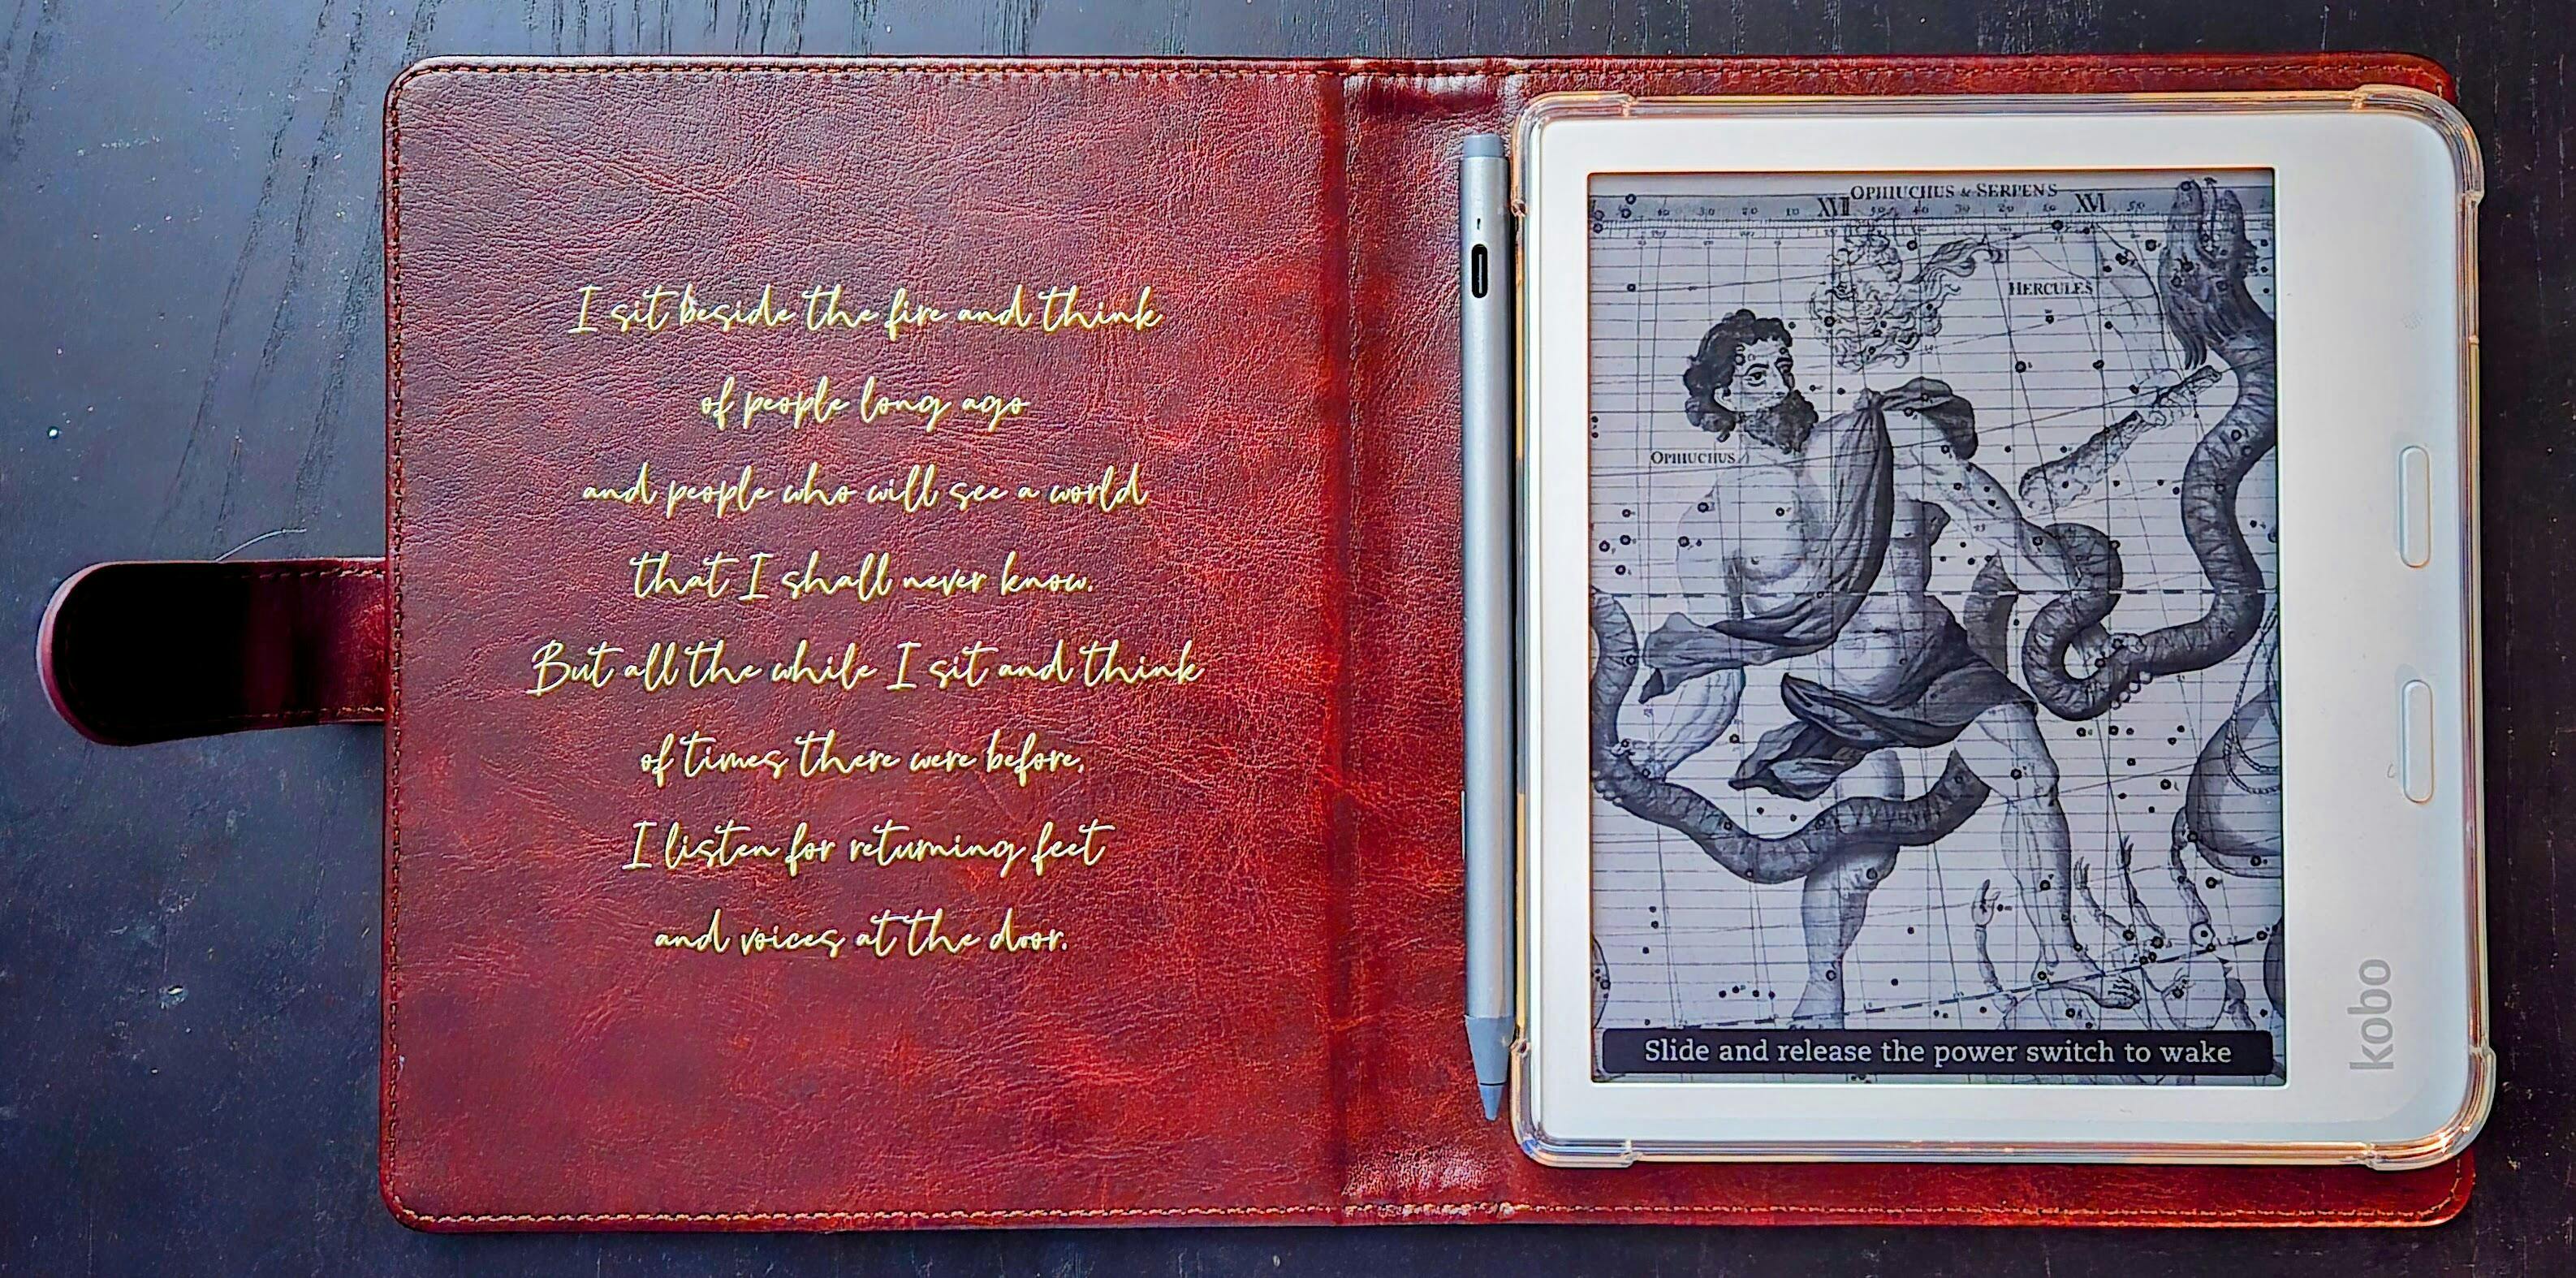 I sit beside the fire and think
of people long ago
and people who will see a world
that I shall never know.
But all the while I sit and think
of times there were before,
I listen for returning feet
and voices at the door.
OPHIUCHUS & SERPENS
XVII
XVI
HERCULES
OPHIUCHUS
Slide and release the power switch to wake
kobo